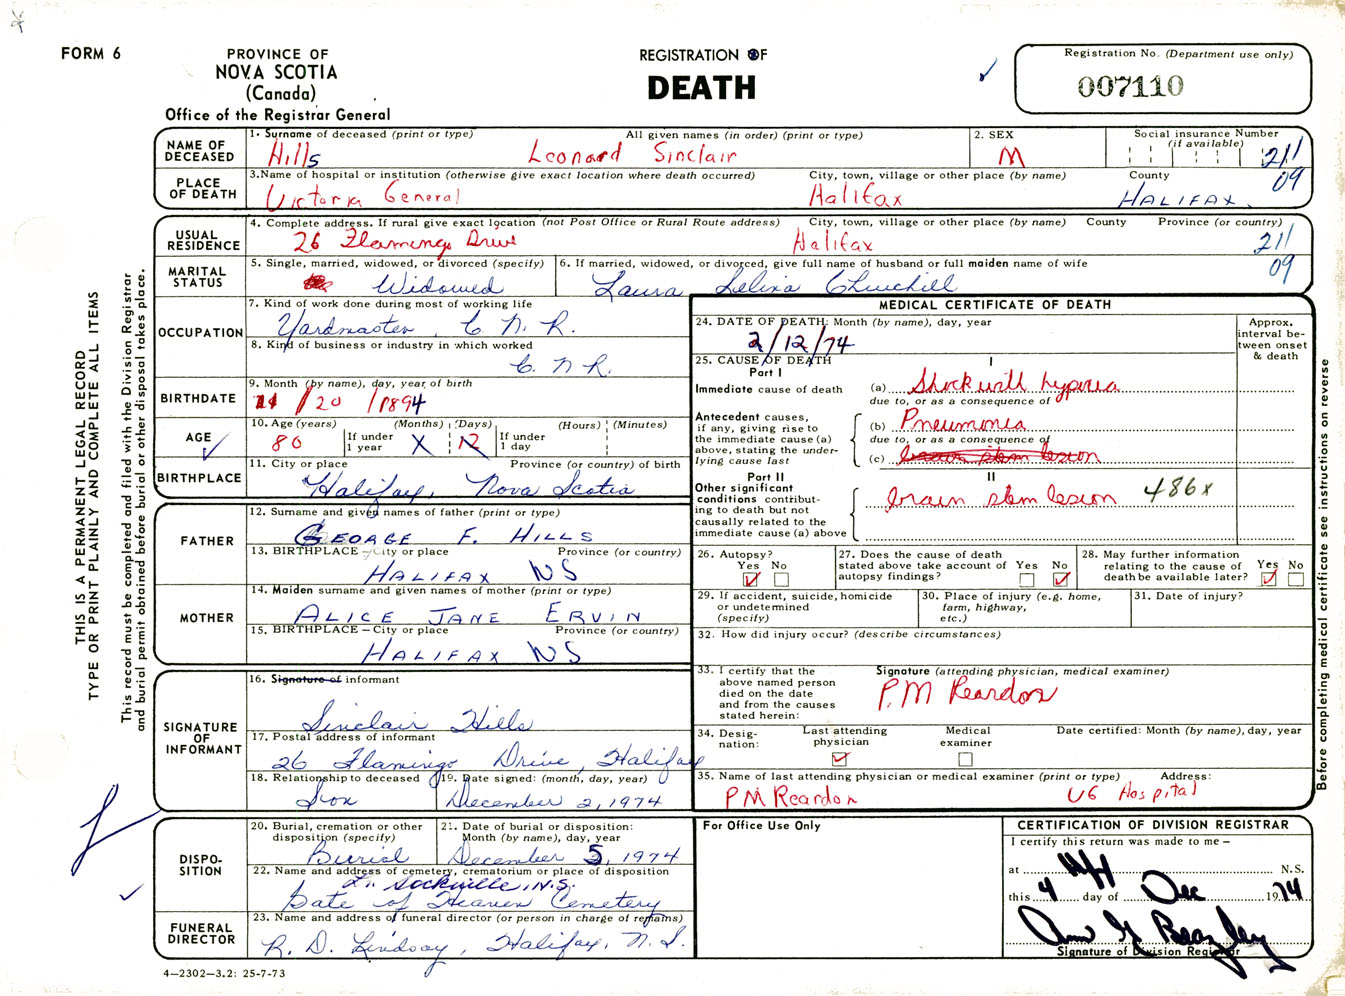 FORM 6
PROVINCE OF
NOVA SCOTIA
(Canada)
Office of the Registrar General
REGISTRATION OF
DEATH
Registration No. (Department use only)
007110
NAME OF DECEASED
1. Surname of deceased (print or type) All given names (in order) (print or type)
Hills Leonard Sinclair
2. SEX
M
Social insurance Number
(if available)
211
09
PLACE OF DEATH
3. Name of hospital or institution (otherwise give exact location where death occurred) City, town, village or other place (by name) County
Victoria General Halifax HALIFAX.
USUAL RESIDENCE
4. Complete address. If rural give exact location (not Post Office or Rural Route address) City, town, village or other place (by name) County Province (or country)
26 Flamingo Drive Halifax
211
09
MARITAL STATUS
5. Single, married, widowed, or divorced (specify)
Widowed
6. If married, widowed, or divorced, give full name of husband or full maiden name of wife
Laura Churchill
OCCUPATION
7. Kind of work done during most of working life
Yardmaster, C.N.R.
8. Kind of business or industry in which worked
C.N.R.
BIRTHDATE
9. Month (by name), day, year of birth
11/20/1894
AGE
10. Age (years) (Months) (Days) (Hours) (Minutes)
80 If under 1 year X 12 If under 1 day
BIRTHPLACE
11. City or place Province (or country) of birth
Halifax, Nova Scotia
FATHER
12. Surname and given names of father (print or type)
GEORGE F. HILLS
13. BIRTHPLACE - City or place Province (or country)
HALIFAX NS
MOTHER
14. Maiden surname and given names of mother (print or type)
ALICE JANE ERVIN
15. BIRTHPLACE - City or place Province (or country)
HALIFAX NS
SIGNATURE OF INFORMANT
16. Signature of informant
Sinclair Hills
17. Postal address of informant
26 Flamingo Drive, Halifax
18. Relationship to deceased
Son
19. Date signed: (month, day, year)
December 2, 1974
DISPO-
SITION
20. Burial, cremation or other disposition (specify)
Burial
21. Date of burial or disposition: Month (by name), day, year
December 5, 1974
22. Name and address of cemetery, crematorium or place of disposition
Sackville, N.S.
Gate of Heaven Cemetery
FUNERAL DIRECTOR
23. Name and address of funeral director (or person in charge of remains)
R. D. Lindsay, Halifax, N.S.
4-2302-3.2: 25-7-73
MEDICAL CERTIFICATE OF DEATH
24. DATE OF DEATH: Month (by name), day, year
2/12/74
Approx. interval between onset & death
25. CAUSE OF DEATH
Part I
I
Immediate cause of death
(a) Shock with
due to, or as a consequence of
Antecedent causes, if any, giving rise to the immediate cause (a) above, stating the underlying cause last
(b) Pneumonia
due to, or as a consequence of
(c) brain stem lesion
Part II
II
Other significant conditions contributing to death but not causally related to the immediate cause (a) above
brain stem lesion 486x
26. Autopsy?
Yes No
27. Does the cause of death stated above take account of autopsy findings?
Yes No
28. May further information relating to the cause of death be available later?
Yes No
29. If accident, suicide, homicide or undetermined (specify)
30. Place of injury (e.g. home, farm, highway, etc.)
31. Date of injury?
32. How did injury occur? (describe circumstances)
33. I certify that the above named person died on the date and from the causes stated herein:
Signature (attending physician, medical examiner)
P.M Reardon
34. Designation:
Last attending physician
Medical examiner
Date certified: Month (by name), day, year
35. Name of last attending physician or medical examiner (print or type) Address:
PM Reardon VG Hospital
For Office Use Only
CERTIFICATION OF DIVISION REGISTRAR
I certify this return was made to me -
at Hfx N.S.
this 4 day of Dec 1974
Signature of Division Registrar
THIS IS A PERMANENT LEGAL RECORD
TYPE OR PRINT PLAINLY AND COMPLETE ALL ITEMS
This record must be completed and filed with the Division Registrar
and burial permit obtained before burial or other disposal takes place.
Before completing medical certificate see instructions on reverse